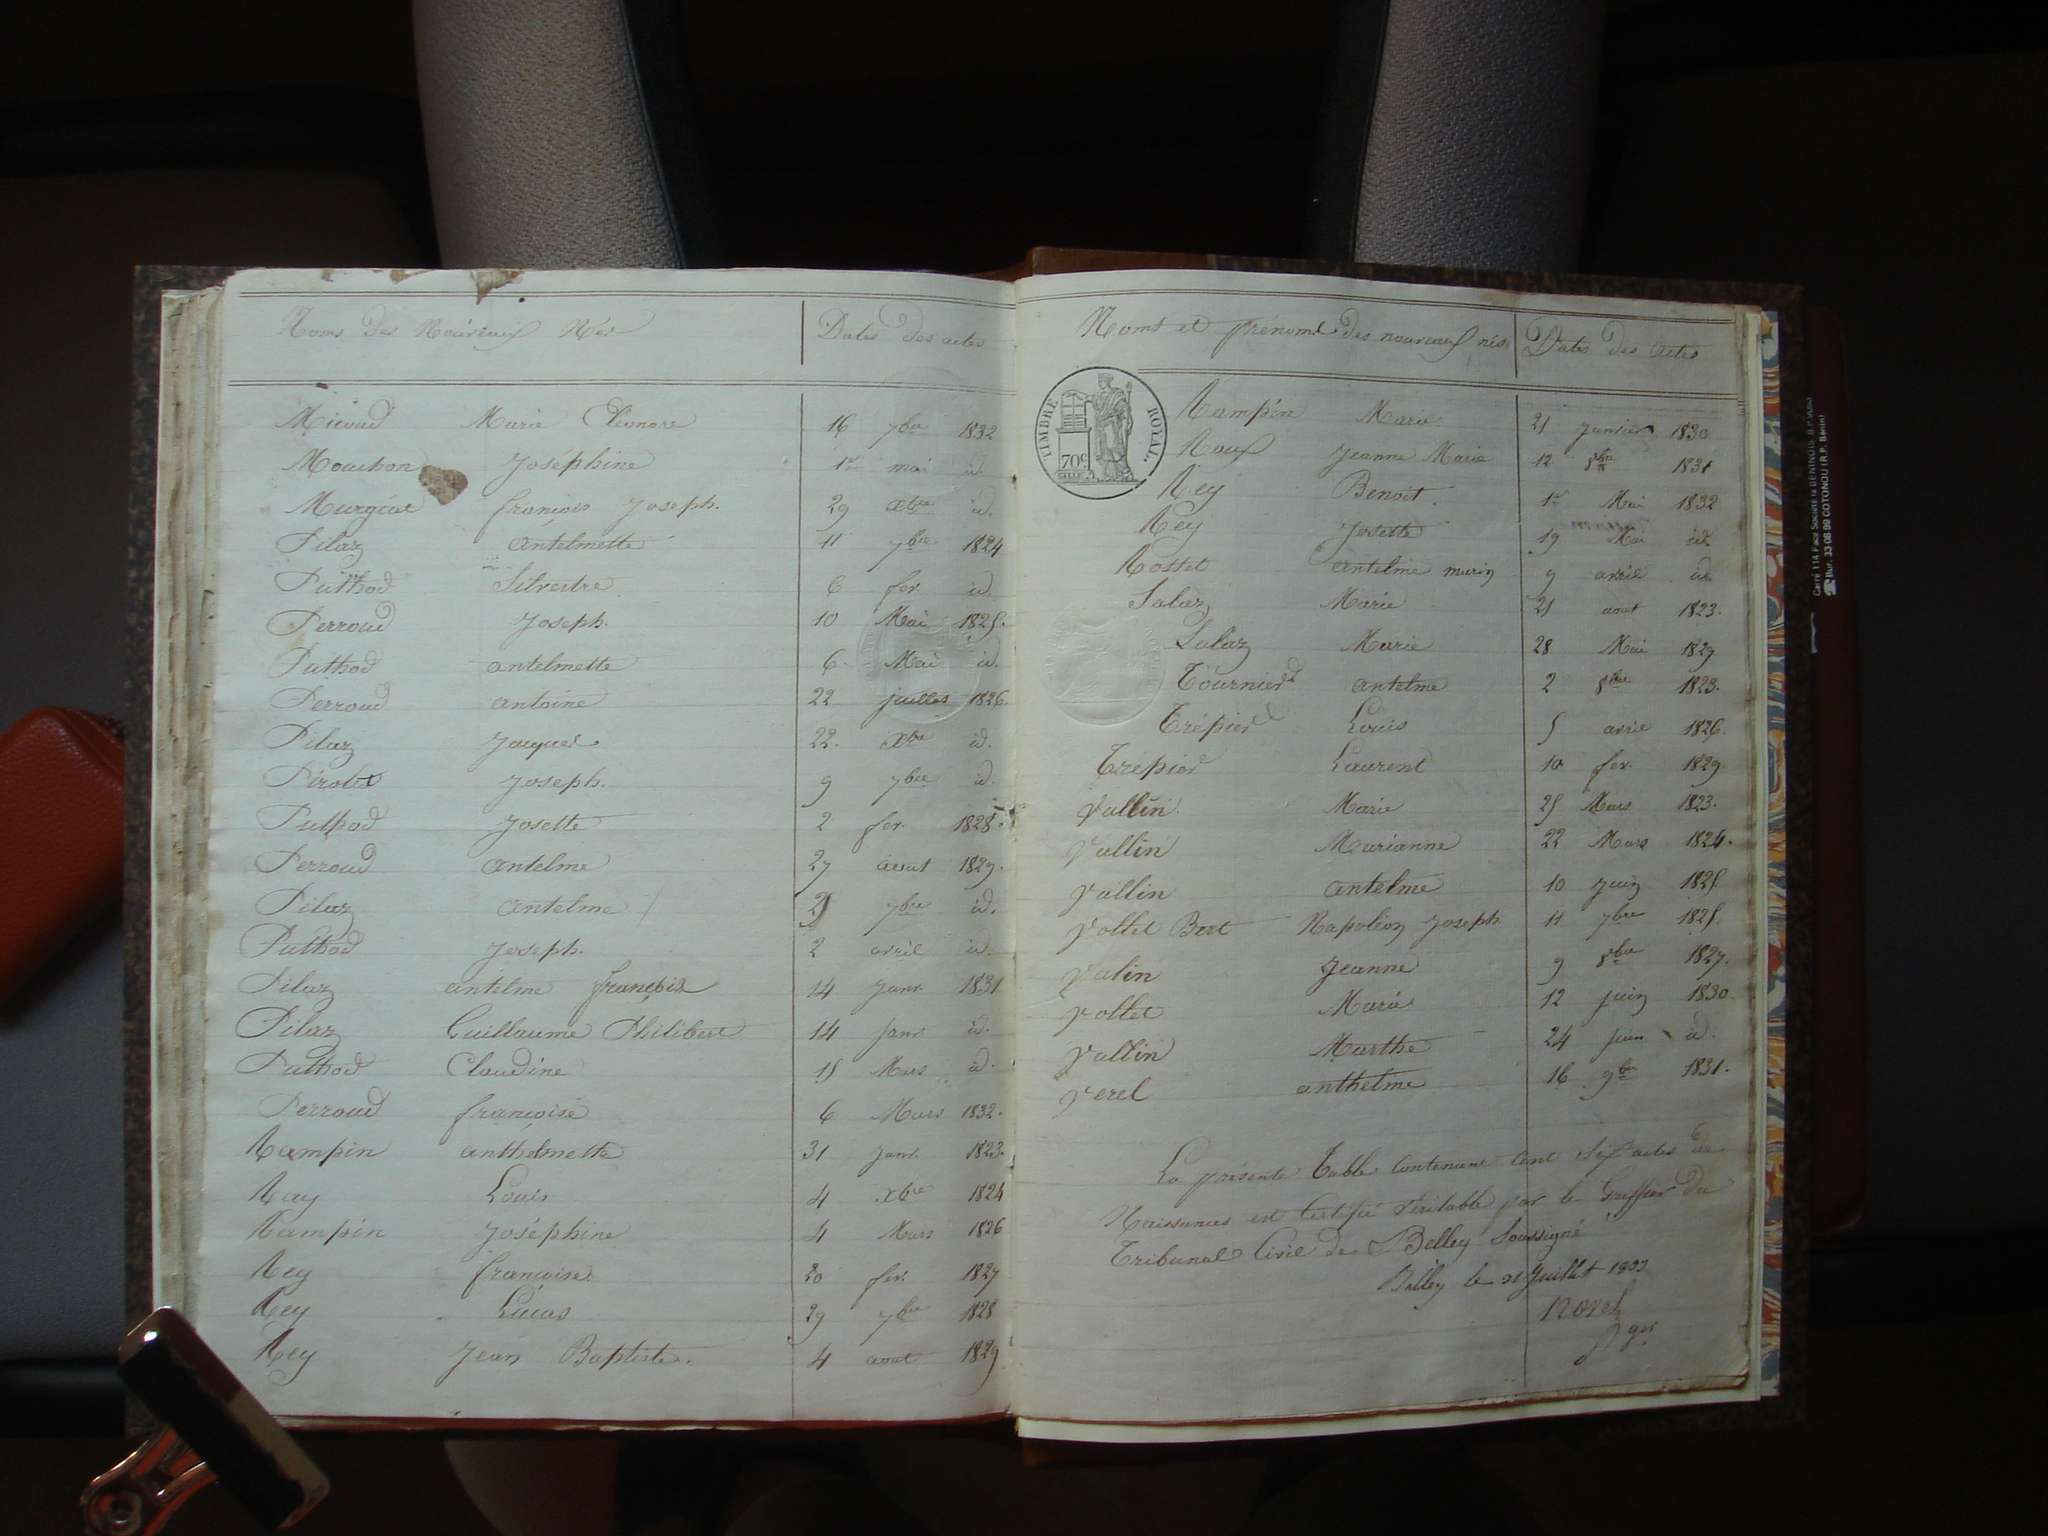 Noms des Nouveaux Nés Dates des actes
Miévud Marie Eléonore 16 7bre 1832
Mouchon Joséphine 1er mai id.
Murgiat françois Joseph. 29 xbre id.
Pilaz Antelmette 11 7bre 1824
Puthod Silvestre 6 fer id.
Perroud Joseph. 10 Mai 1825.
Puthod antelmette 6. Mai id.
Perroud antoine 22 juillet 1826.
Pilaz Jacques 22. xbre id.
Pirolet Joseph. 9 7bre id.
Puthod Josette 2 fer. 1828.
Perroud antelme 27 aout 1829.
Pilaz antelme 7bre id.
Puthod Joseph. 2 avril id.
Pilaz antelme françois 14 Janr. 1831
Pilaz Guillaume Philibert 14 Janr. id.
Puthod Claudine 15 Mars id.
Perroud françoise 6 Mars 1832.
Rampin anthelmette 31 Janr. 1823.
Ray Louis 4 xbre 1824
Rampin Joséphine 4 Mars 1826
Rey françoise 20 fer. 1827
Rey Lucas 29 7bre 1828
Rey Jean Baptiste. 4 aout 1829
Noms et prénoms des nouveaux nés Dates des Actes
TIMBRE ROYAL
70c
Rampin Marie 21 Janvier 1830
Roux Jeanne Marie 12 8bre 1831
Rey Benoit 1er Mai 1832
Rey Josette 19 Mai id.
Rostet Antelme marin 9 avril id.
Salaz Marie 21 aout 1823.
Salaz Marie 28 Mai 1829
Tournier antelme 2 8bre 1823.
Trépier Louis 5 avril 1826.
Trépier Laurent 10 fer. 1829.
Vallin Marie 25 Mars 1823.
Vallin Marianne 22 Mars 1824.
Vallin antelme 10 Juin 1825.
Vollet Bert Napoléon Joseph 11 7bre 1825.
Valin Jeanne 9 8bre 1827.
Vollet Marie 12 Juin 1830.
Vallin Marthe 24 Juin id.
Verel anthelme 16 9bre 1831.
La présente Table Contenant Cent Six actes de
Naissances est Certifié Véritable par le Greffier du
Tribunal Civil de Belley Soussigné
Belley le 21 Juillet 1833
ger
Carré 114 Face Société la BENINOISE B.P. 8083
Bur. 33-08-99 COTONOU (R.P. Bénin)